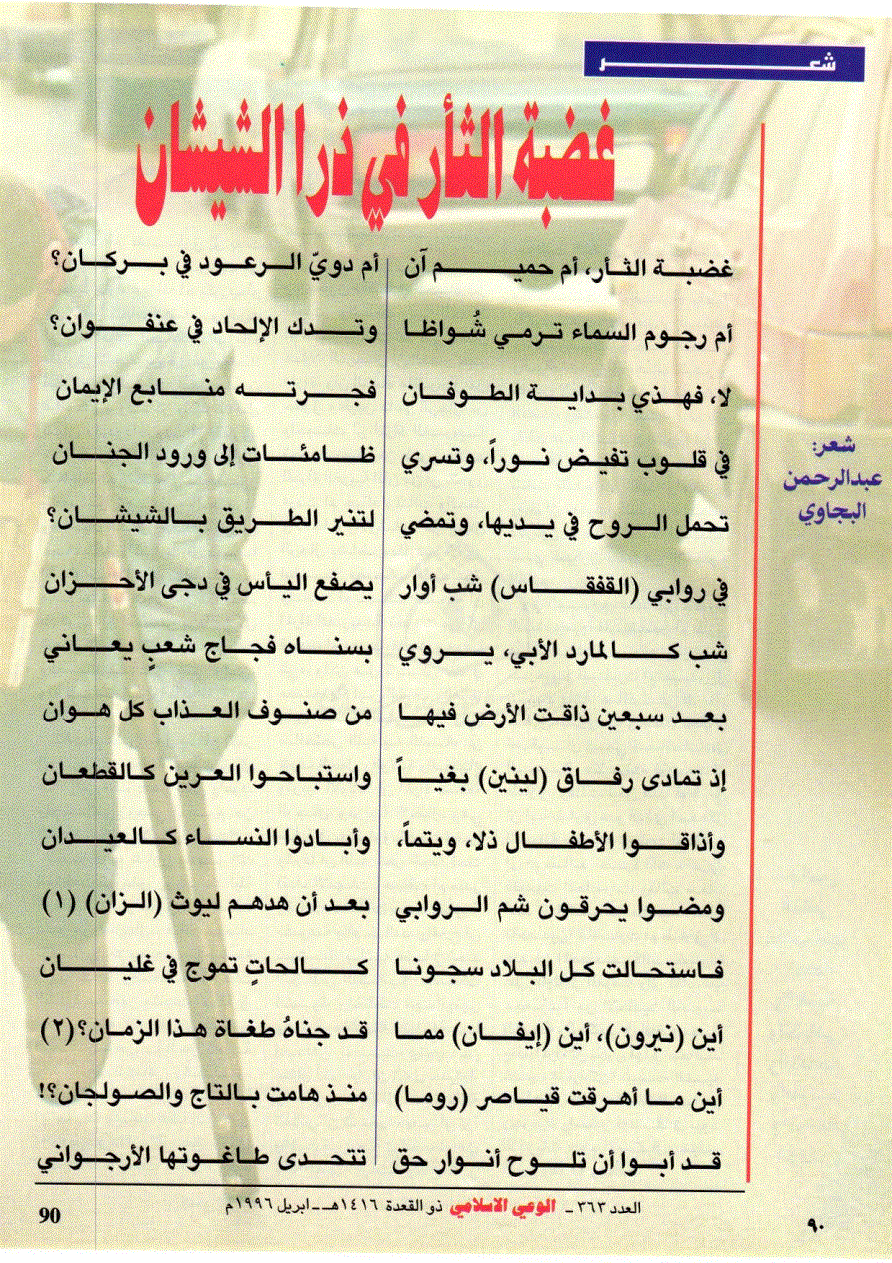 شعر
غضبة الثأر في ذرا الشيشان
شعر:
عبدالرحمن
البجاوي
غضبة الثأر، أم حميم آن أم دويّ الرعود في بركان؟
أم رجوم السماء ترمي شُواظا وتدك الإلحاد في عنفوان؟
لا، فهذي بداية الطوفان فجرته منابع الإيمان
في قلوب تفيض نوراً، وتسري ظامئات إلى ورود الجنان
تحمل الروح في يديها، وتمضي لتنير الطريق بالشيشان؟
في روابي (القفقاس) شب أوار يصفع اليأس في دجى الأحزان
شب كالمارد الأبي، يروي بسناه فجاج شعبٍ يعاني
بعد سبعين ذاقت الأرض فيها من صنوف العذاب كل هوان
إذ تمادى رفاق (لينين) بغياً واستباحوا العرين كالقطعان
وأذاقوا الأطفال ذلا، ويتماً، وأبادوا النساء كالعيدان
ومضوا يحرقون شم الروابي بعد أن هدهم ليوث (الزان) (١)
فاستحالت كل البلاد سجونا كالحاتٍ تموج في غليان
أين (نيرون)، أين (إيفان) مما قد جناهُ طغاة هذا الزمان؟ (٢)
أين ما أهرقت قياصر (روما) منذ هامت بالتاج والصولجان؟!
قد أبوا أن تلوح أنوار حق تتحدى طاغوتها الأرجواني
العدد ٣٦٣ - الوعي الاسلامي ذو القعدة ١٤١٦هـ - ابريل ١٩٩٦م
90
٩٠